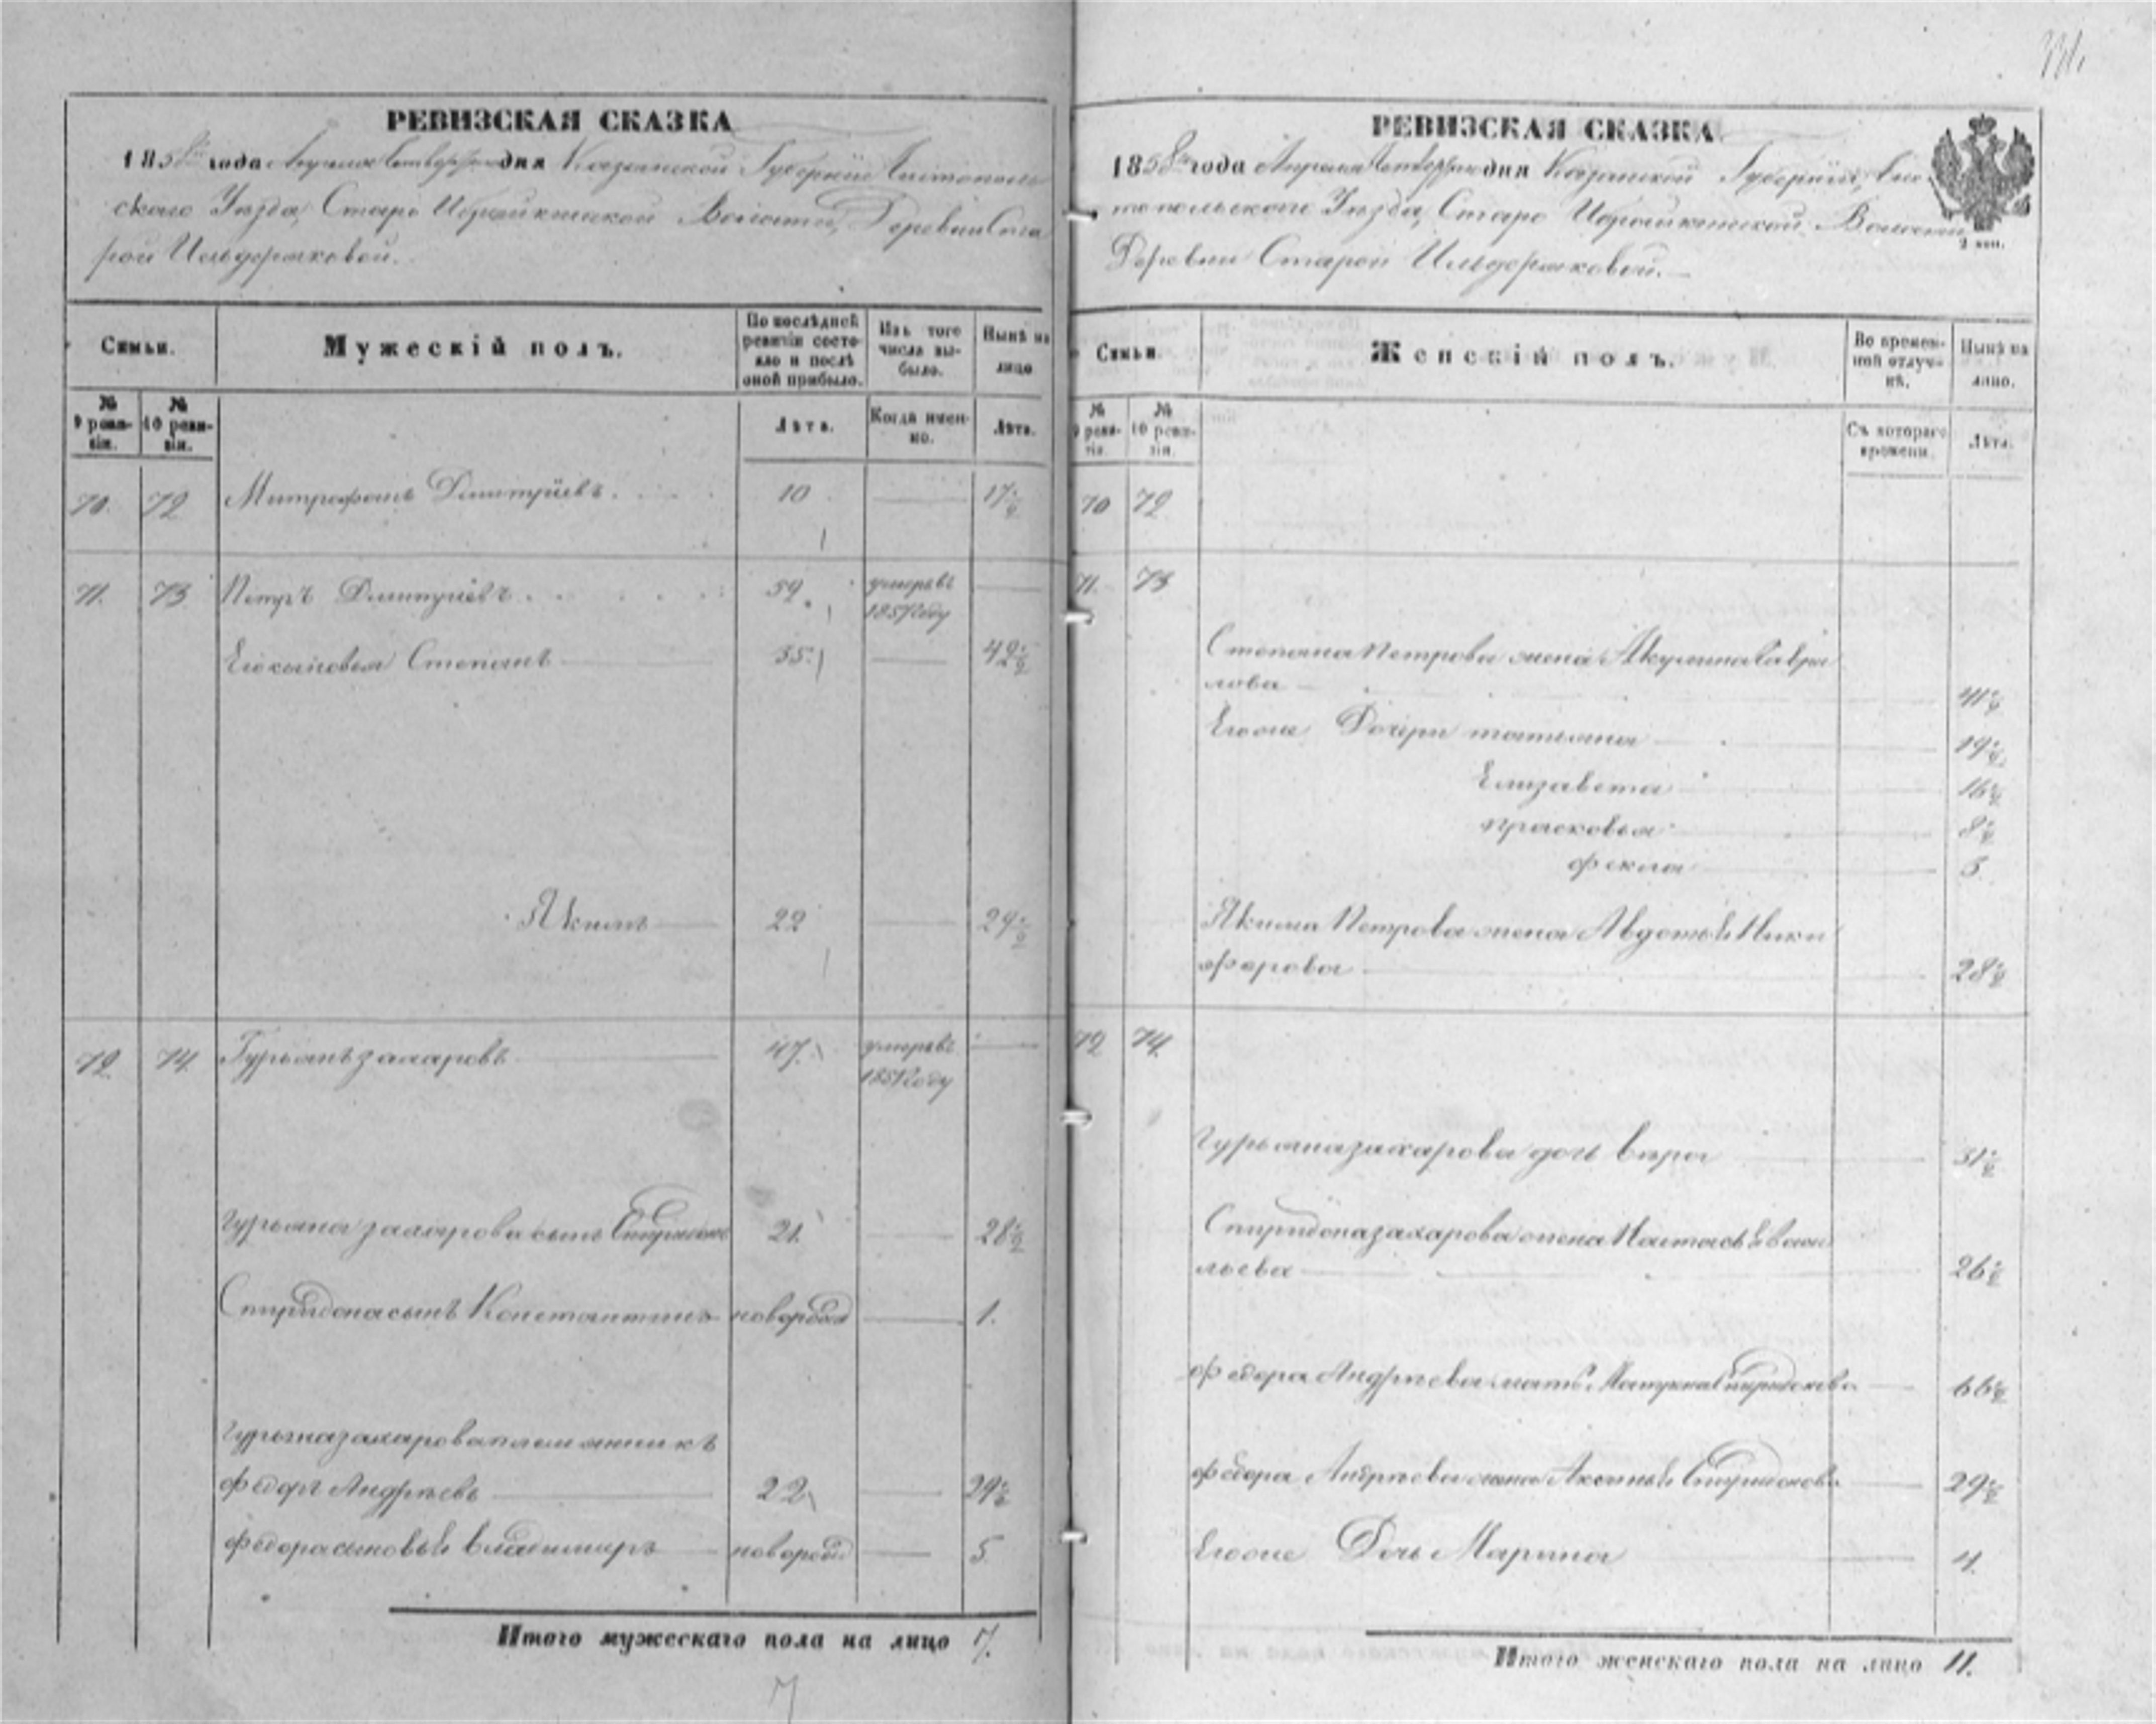 РЕВИЗСКАЯ СКАЗКА
1858го года Апреля Четвертого дня Казанской Губерніи Чистополь
скаго Уезда, Старо Ибрайкинской Волости, Деревни Ста
рой Ильдеряковой.
Семьи.
Мужескій полъ.
По послѣдней ревизіи состояло и послѣ оной прибыло.
Изъ того числа выбыло.
Нынѣ на лицо
№ 9 ревизіи.
№ 10 ревизіи.
Лѣта.
Когда именно.
Лѣта.
70. 72 Митрофанъ Дмитріевъ 10 17½
71. 73 Петръ Дмитріевъ 59 умеръ въ
185 году
Егосыновья Степанъ 35 42½
Якимъ 22 29½
72 74 Гурьянъ захаровъ 47 умеръ въ
185 году
Гурьяна захарова сынъ Спиридонъ 21 28½
Спиридона сынъ Константинъ новорожд 1.
Гурьяна захарова племянникъ
Федоръ Андреевъ 22 29½
Федора сыновья Владимиръ новорожд 5
Итого мужескаго пола на лицо 7.
7
РЕВИЗСКАЯ СКАЗКА
1858го года Апреля Четвертого дня Казанской Губерніи, Чис
топольскаго Уезда, Старо Ибрайкинской Волости
Деревни Старой Ильдеряковой.
2 коп.
Семьи.
Женскій полъ.
Во временной отлучкѣ.
Нынѣ на лицо.
№ 9 ревизіи.
№ 10 ревизіи.
Съ котораго времени.
Лѣта.
70 72
71. 73
Степана Петрова жена Акулина Гаври
лова 41½
Егоже Дочери татьяна 19½
Елизавета 16½
Прасковья 8½
Фекла 5
Якима Петрова жена Авдотья Ники
форова 28½
72 74.
Гурьяна захарова дочь вера 31½
Спиридона захарова жена Настасья Васи
льева 26½
Федора Андреева мать Матрена Спиридонова 66½
Федора Андреева жена Аксинья Спиридонова 29½
Егоже Дочь Марина 4.
Итого женскаго пола на лицо 11.